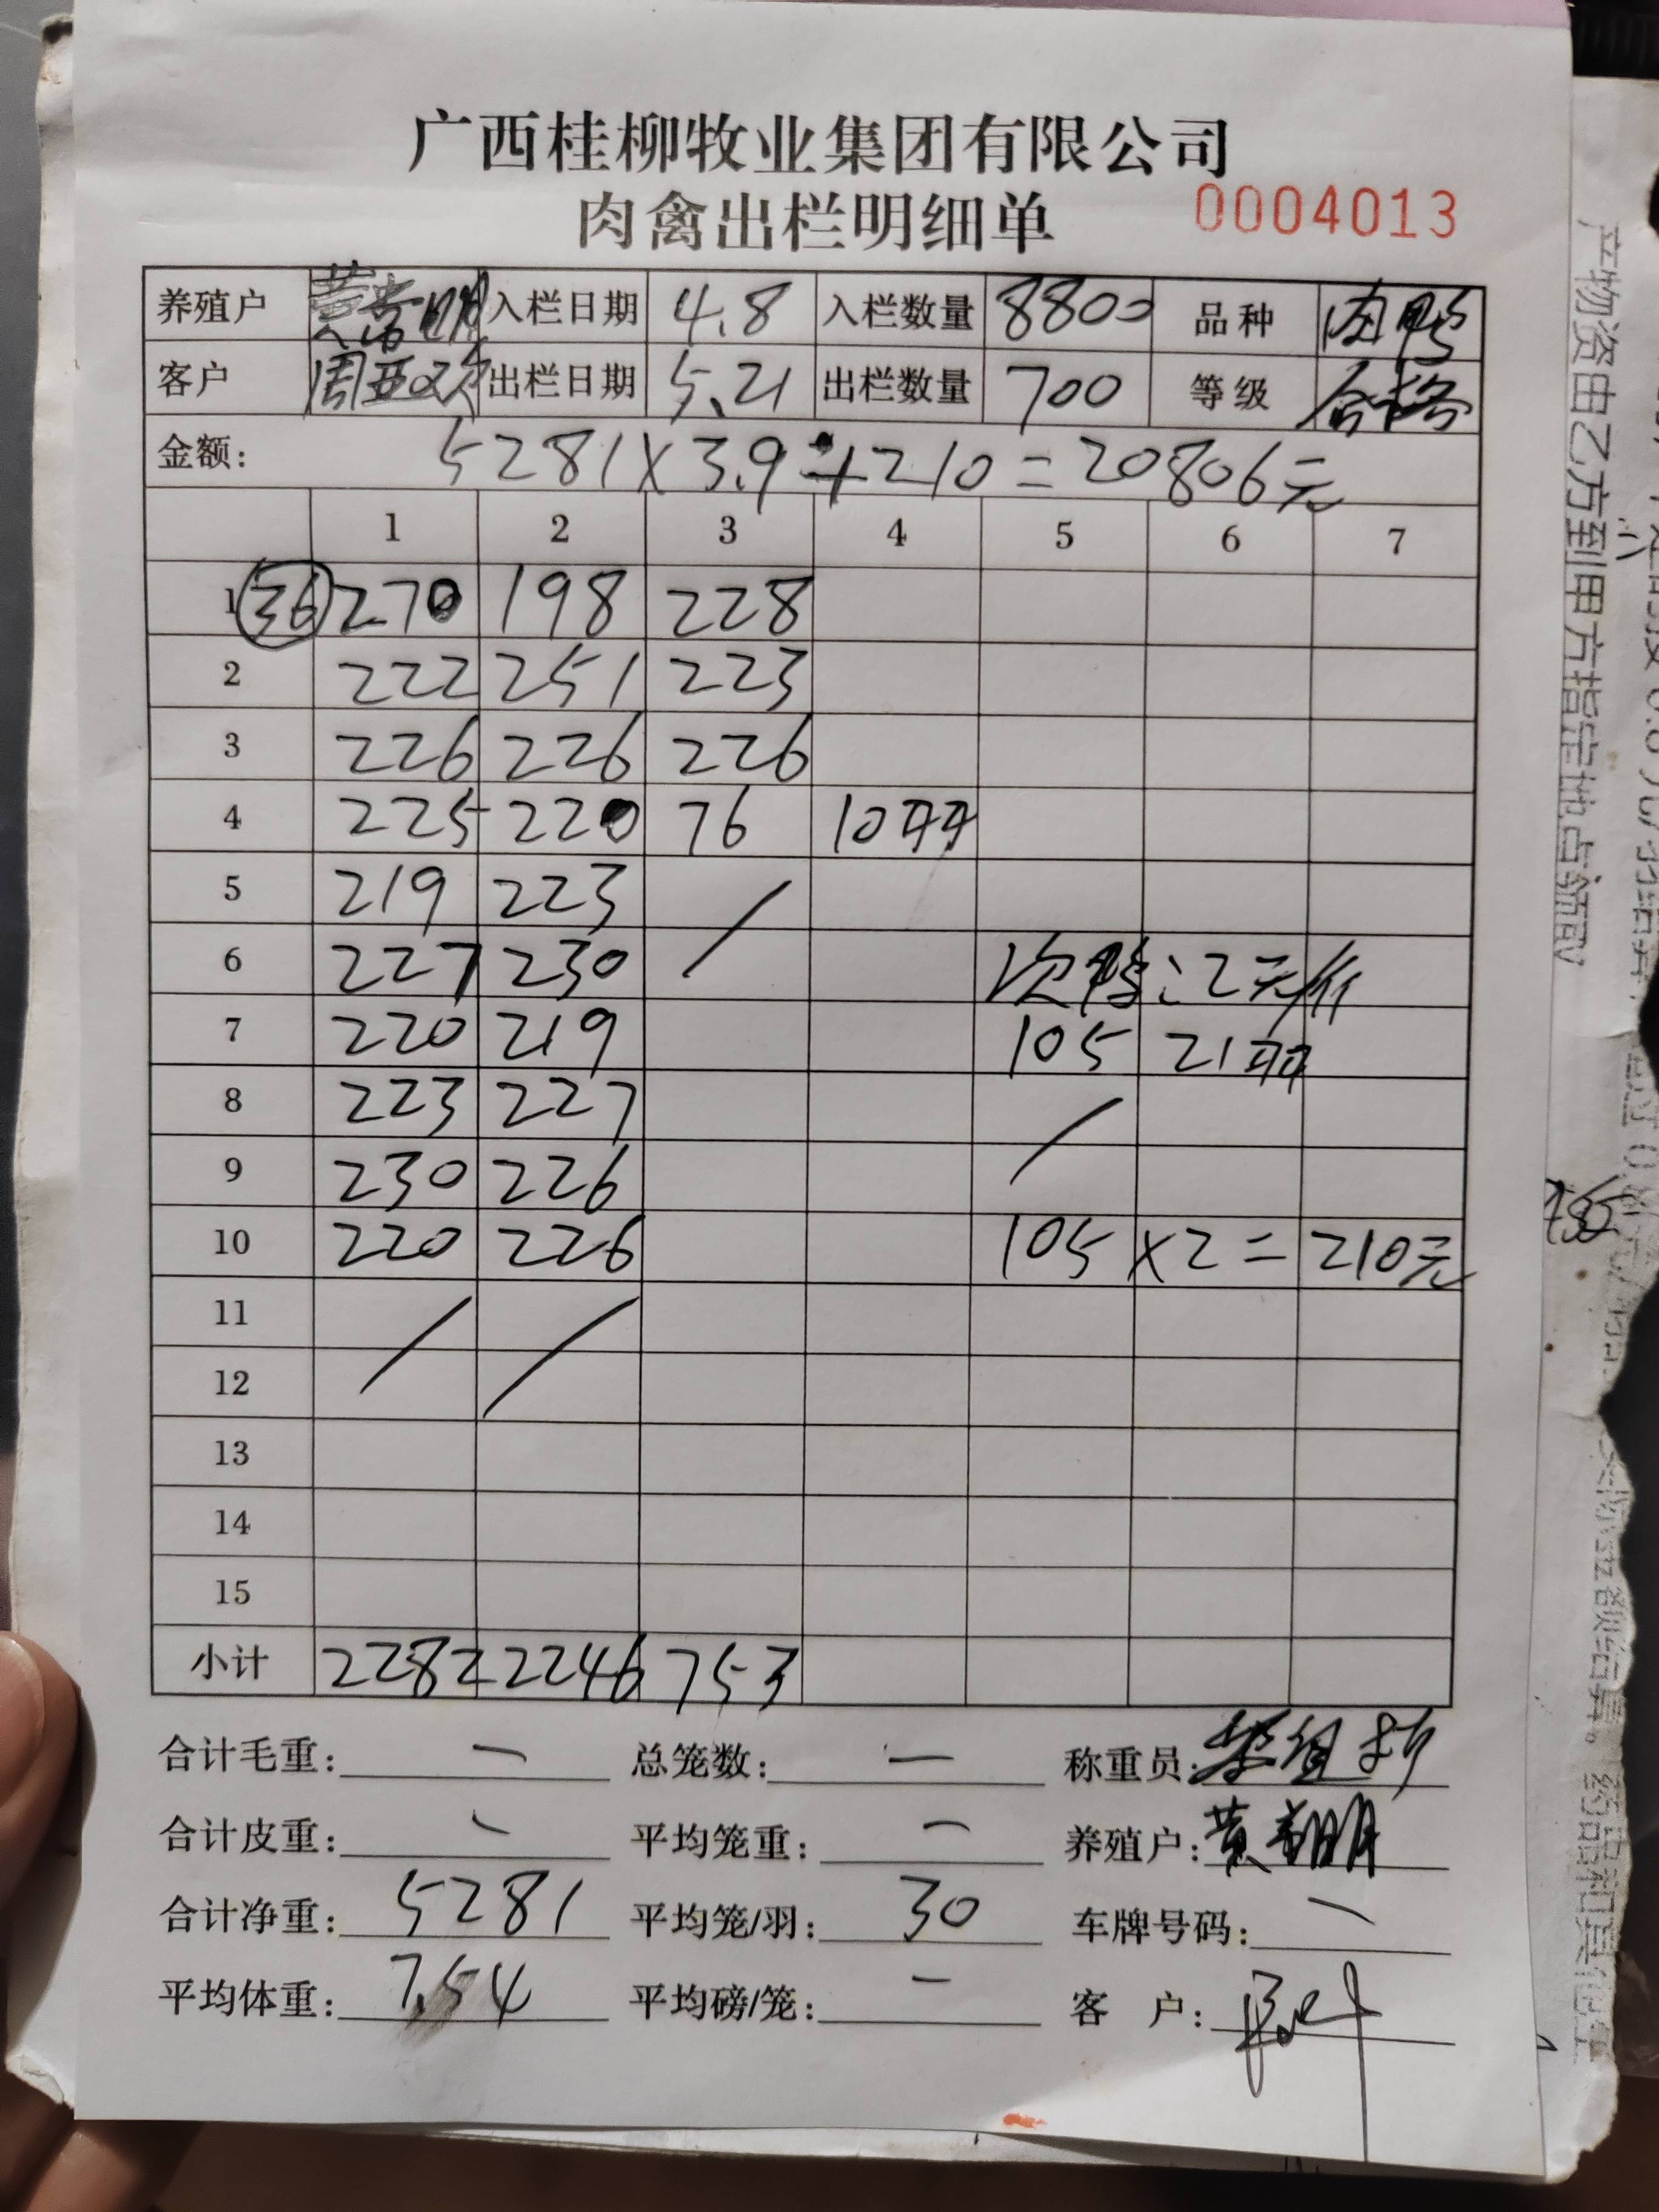 广西桂柳牧业集团有限公司
肉禽出栏明细单 0004013
养殖户 入栏日期 4.8 入栏数量 8800 品种 肉鸭
客户 周亚欢 出栏日期 5.21 出栏数量 700 等级 合格
金额: 5281×3.9+210=20806元
1 2 3 4 5 6 7
1 36 270 198 228
2 222 251 223
3 226 226 226
4 225 220 76 10只
5 219 223
6 227 230 次鸭:2元/斤
7 220 219 105 21只
8 223 227
9 230 226
10 220 226 105×2=210元
11
12
13
14
15
小计 2282 2246 753
合计毛重: 一 总笼数: 一 称重员:
合计皮重: 一 平均笼重: 一 养殖户:
合计净重: 5281 平均笼/羽: 30 车牌号码: 一
平均体重: 7.54 平均磅/笼: 一 客 户:
产物资由乙方到甲方指定地点领取